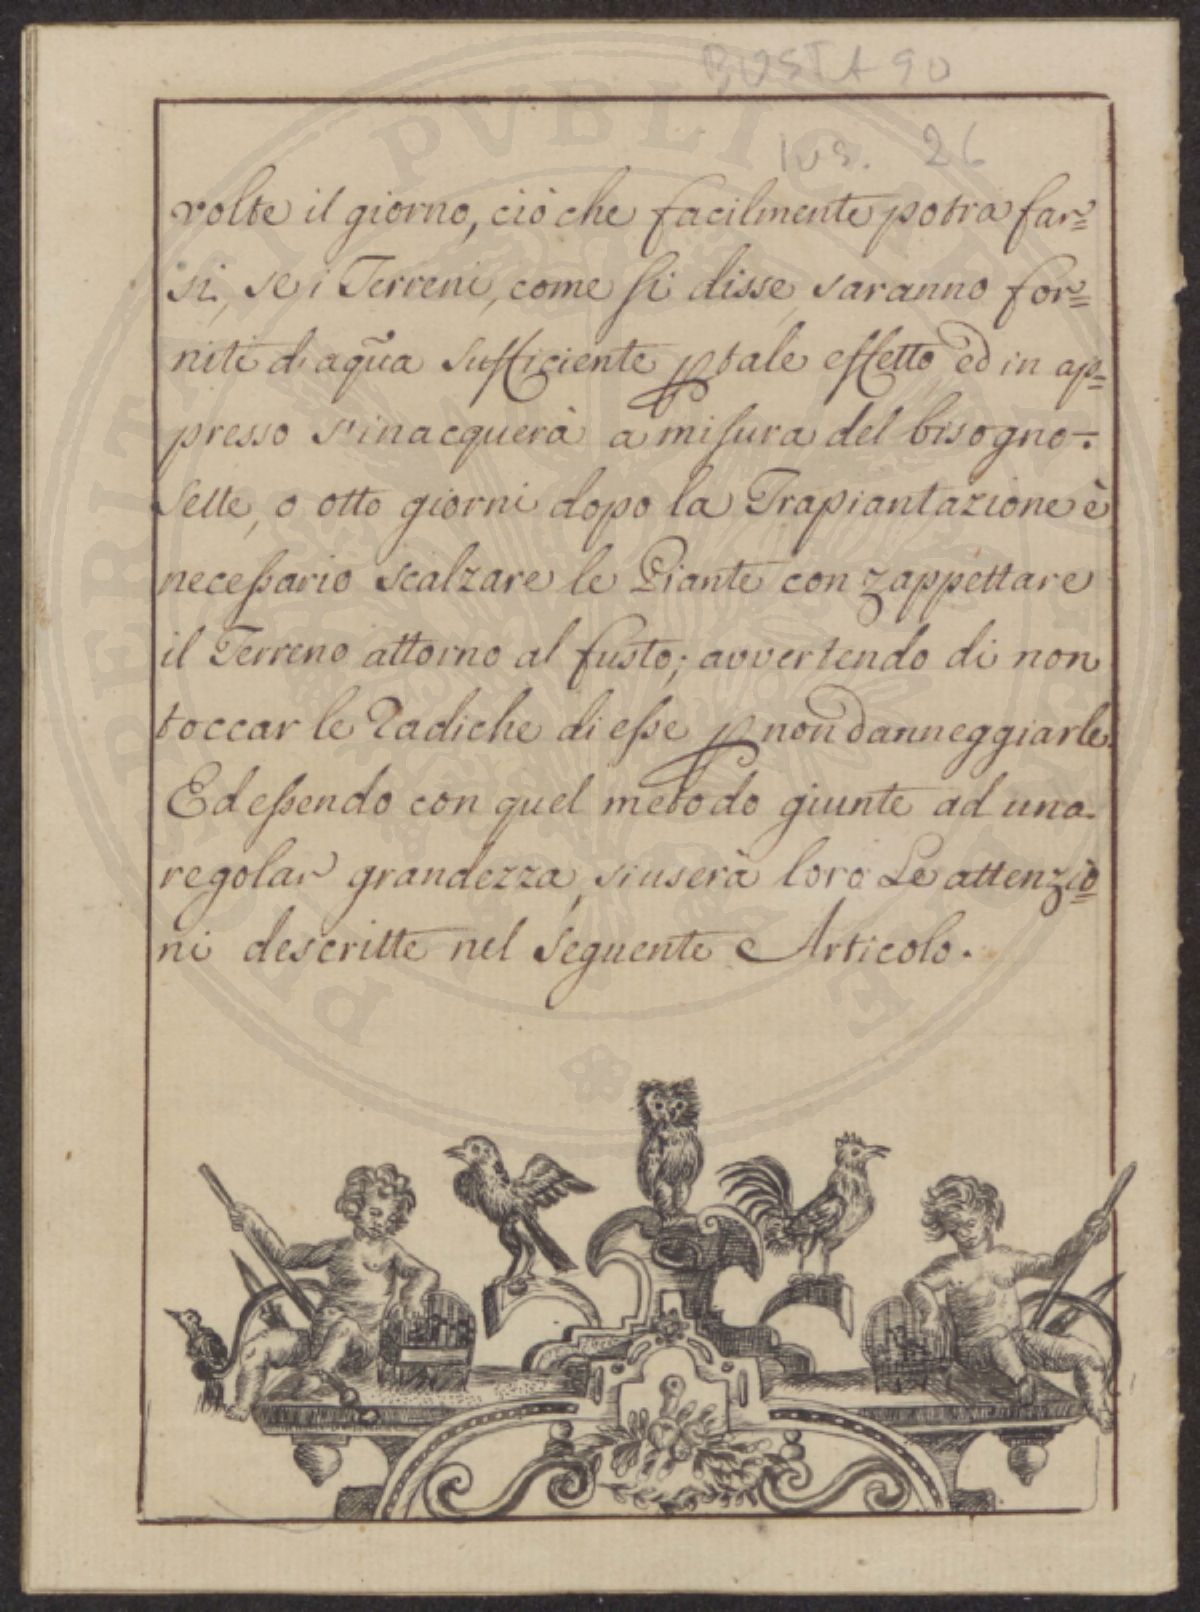 BUSTA 90
Ins. 26
volte il giorno, ciò che facilmente potra far=
si, se i Terreni, come si disse, saranno for=
niti di aqũa sufficiente p tale effetto, ed in ap=
presso s'inacquerà a misura del bisogno.
Sette, o otto giorni dopo la Trapiantazione è
necessario scalzare le Piante con zappettare
il Terreno attorno al fusto; avvertendo di non
toccar le Radiche di esse p non danneggiarle.
Ed essendo con quel metodo giunte ad una
regolar grandezza, si userà loro Le attenzio=
ni descritte nel Seguente Articolo.